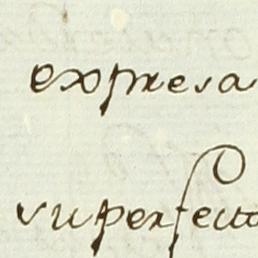 expresa
superfecto